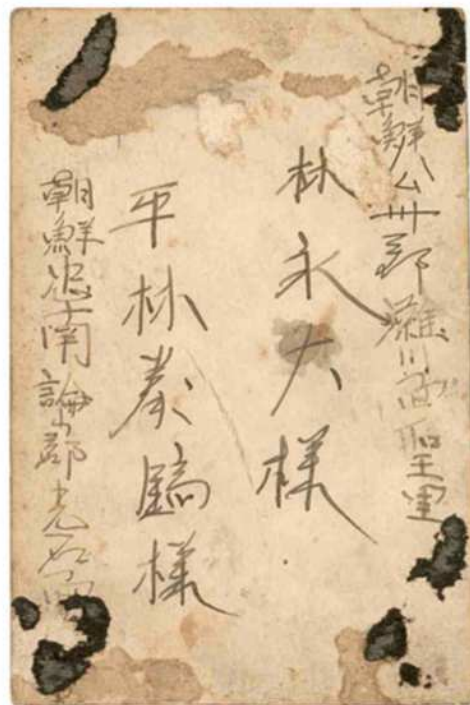 朝鮮公州郡灘川面聖里
林永大様
平林泰鎬様
朝鮮忠南論山郡光石面